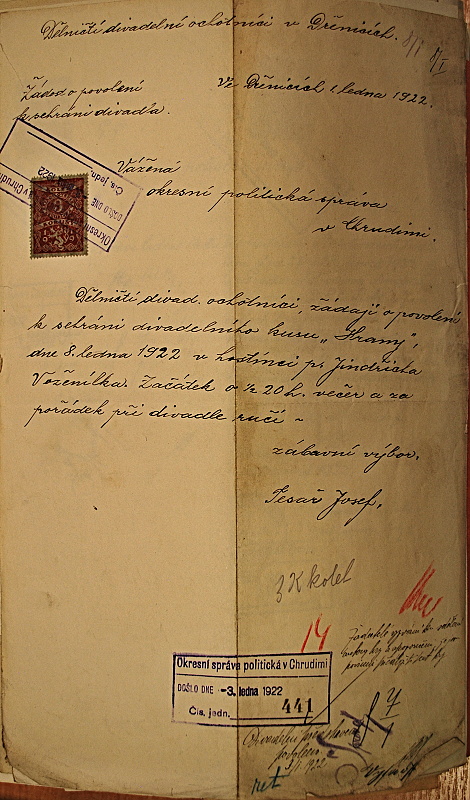 Dělničtí divadelní ochotníci v Dřenicích.
8/I
Žádost o povolení
Ve Dřenicích 1 ledna 1922.
k sehrání divadla.
Vážená
okresní politická správa
v Chrudimi.
Dělničtí divad. ochotníci, žádají o povolení
k sehrání divadelního kusu "
dne 8. ledna 1922 v hostinci p. Jindřicha
Voženílka. Začátek o ½ 20 h. večer a za
pořádek při divadle ručí -
zábavní výbor.
Tesař Josef,
3 K kolek
14
Okresní správa politická v Chrudimi
DOŠLO DNE -3. ledna 1922
Čís. jedn. 441